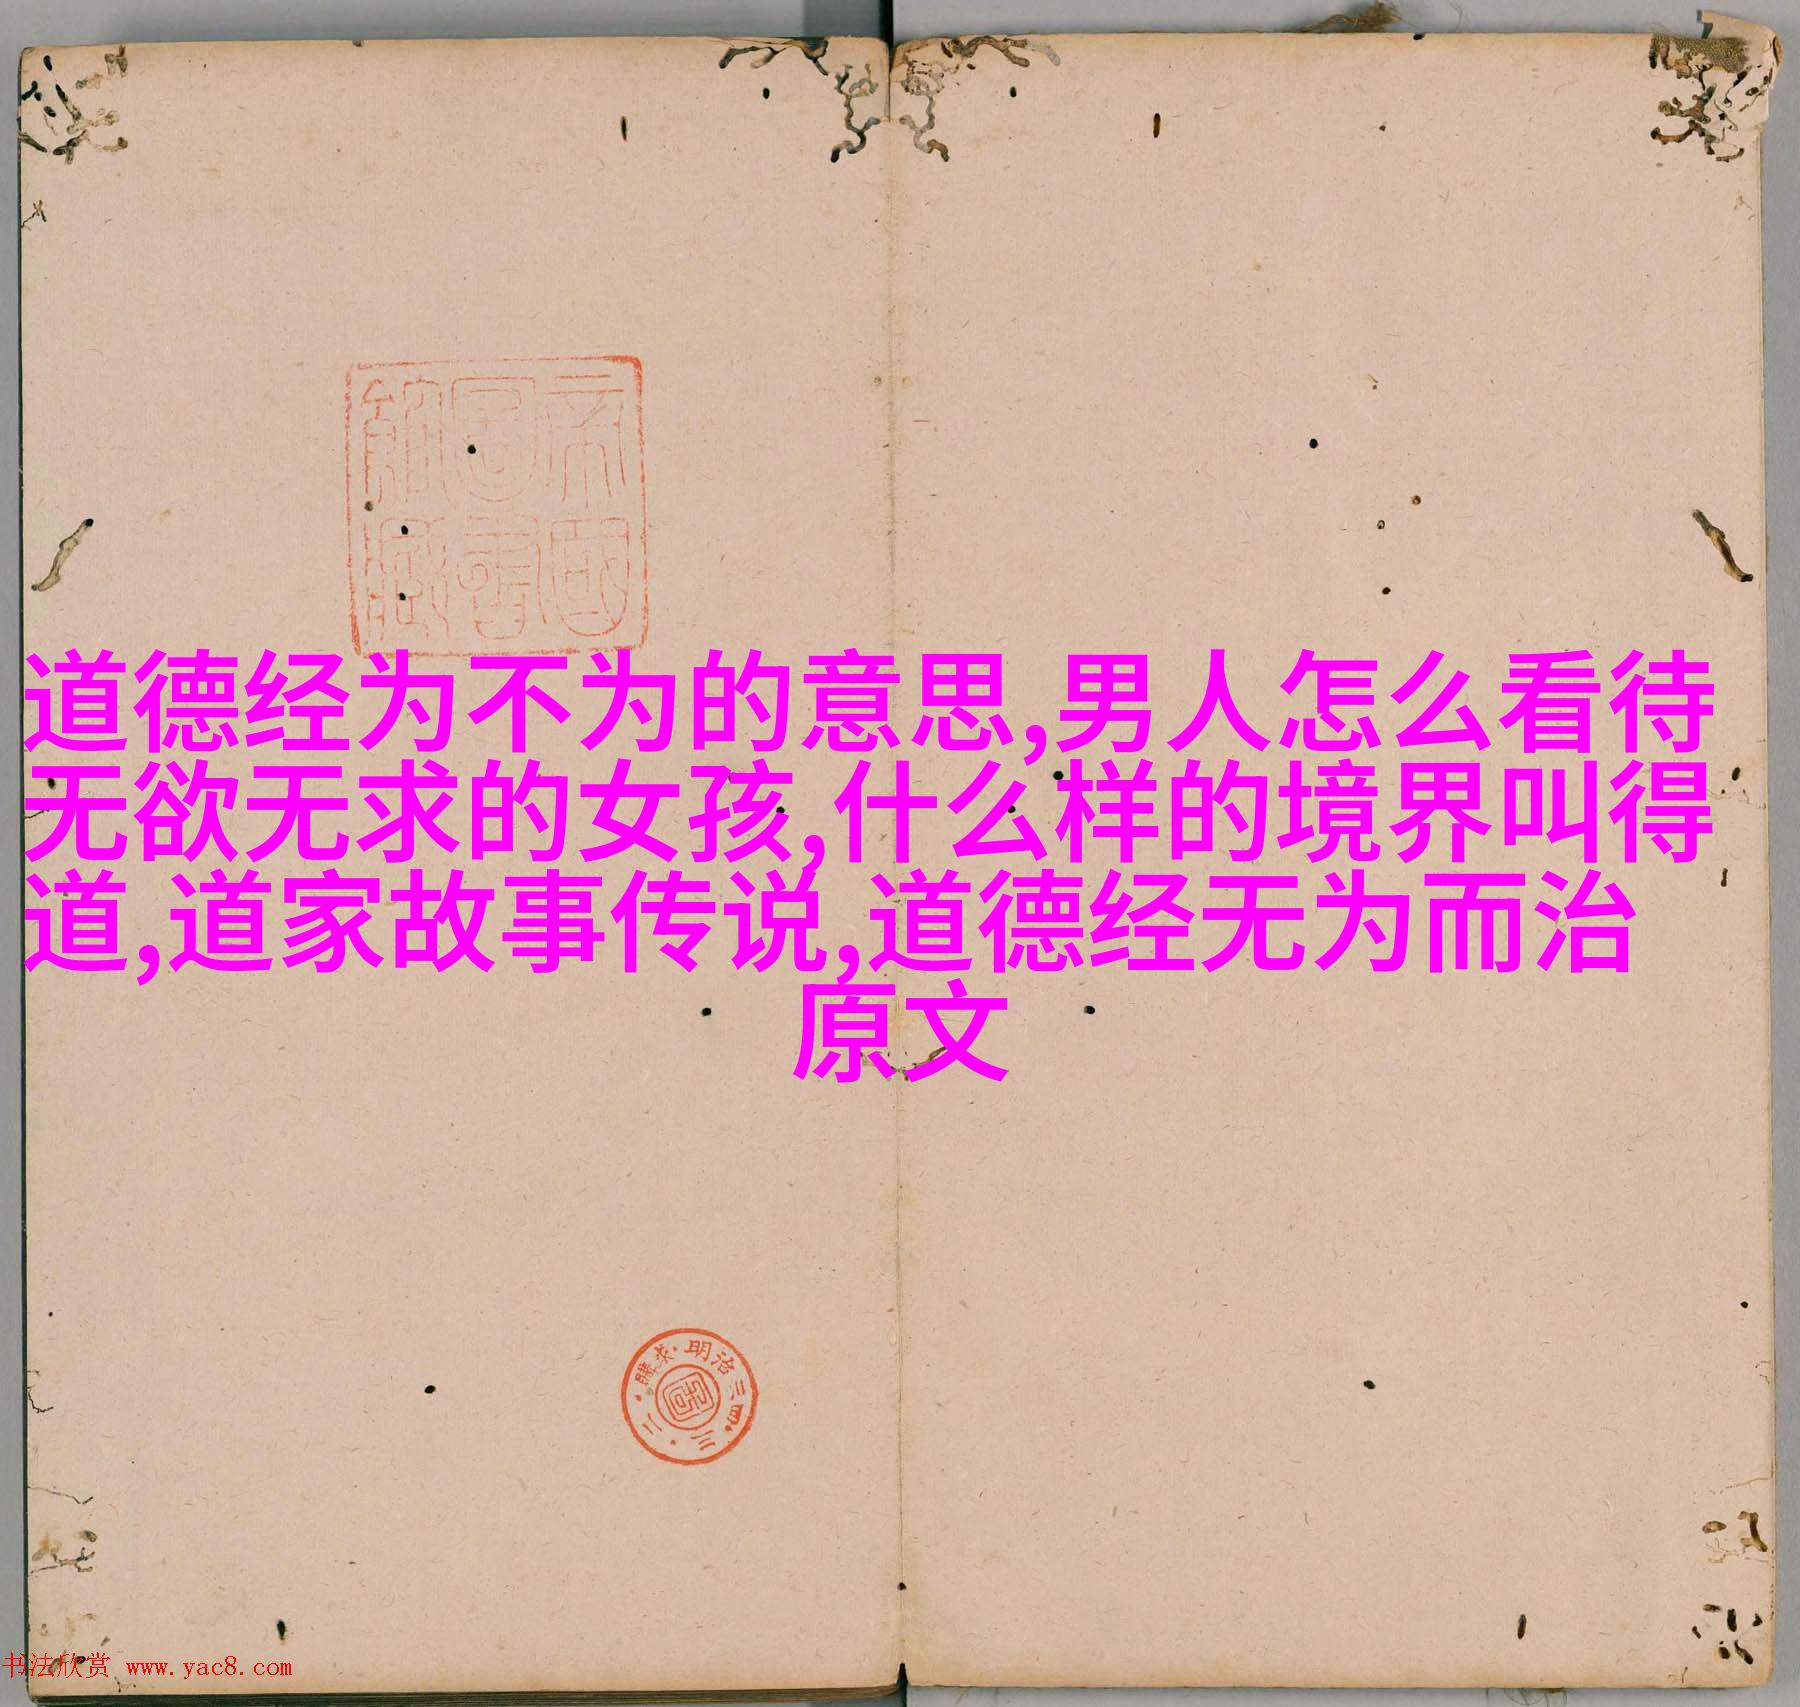 帝國
圖書
館藏
道德经为不为的意思,男人怎么看待
无欲无求的女孩,什么样的境界叫得
道,道家故事传说,道德经无为而治
原文
明治三四·三·二·購求·
书法欣赏 www.yac8.com